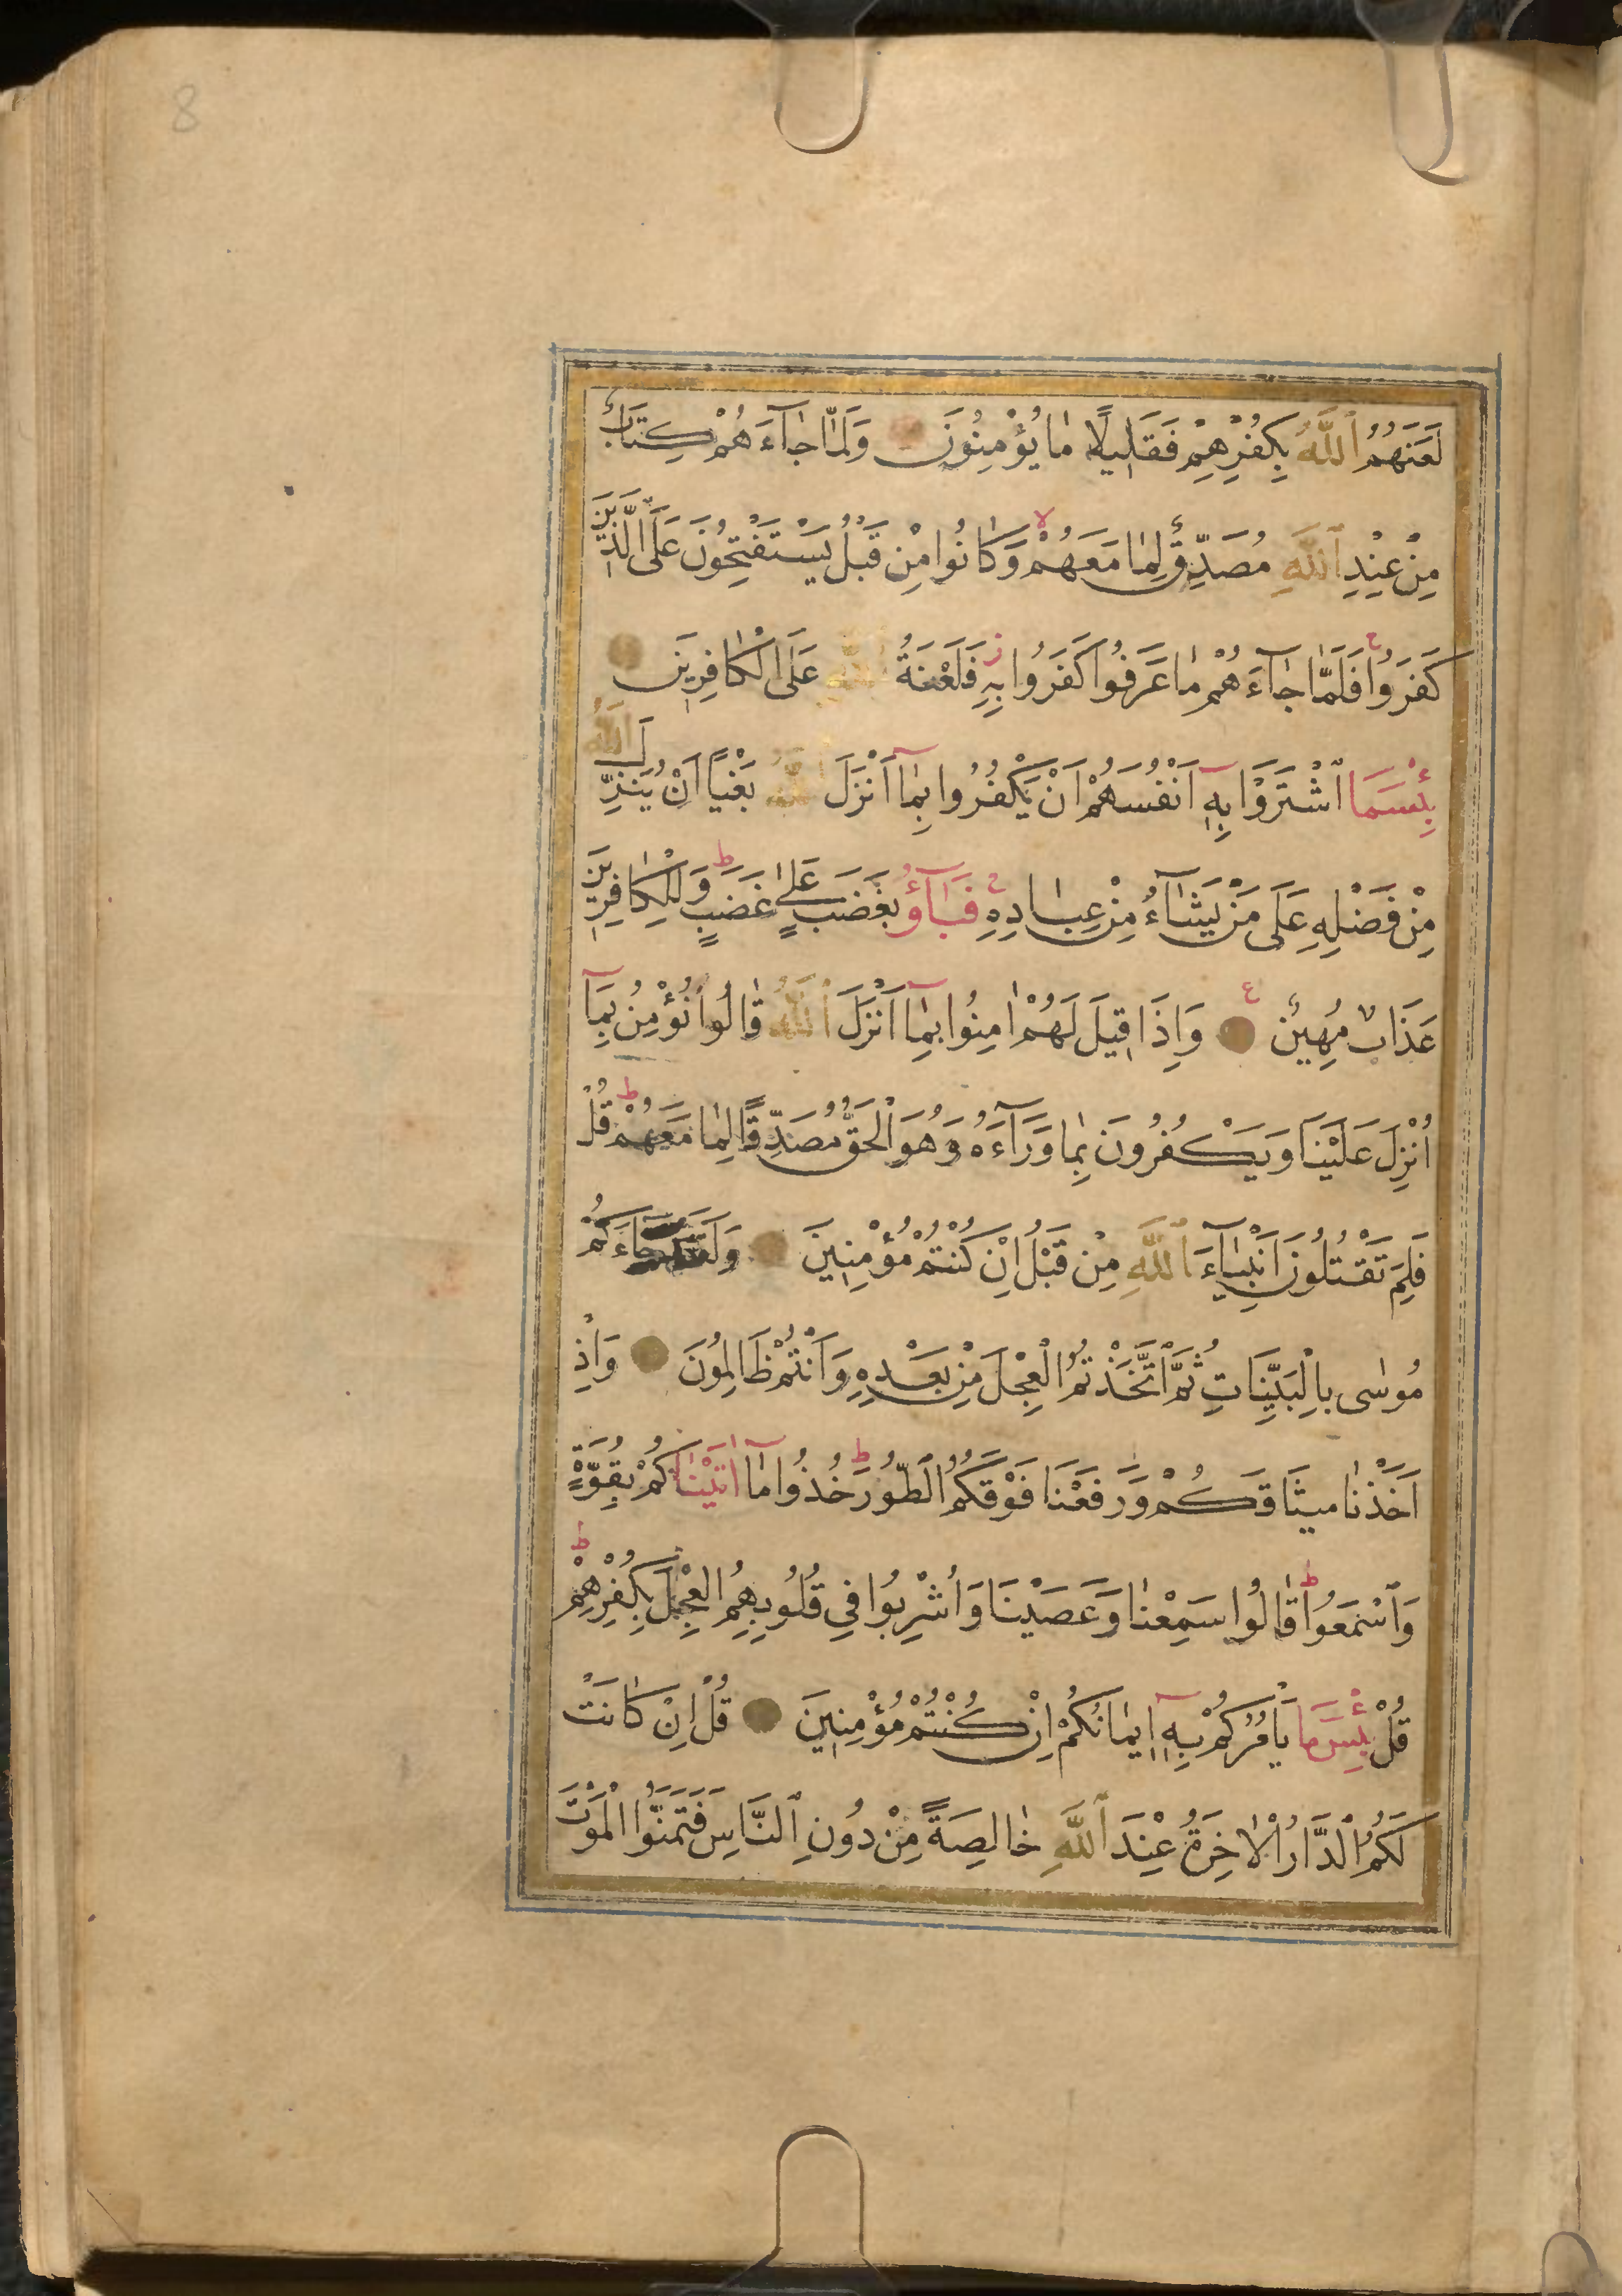 8
لَعَنَهُمُ ٱللَّهُ بِكُفْرِهِمْ فَقَلِيلًا مَا يُؤْمِنُونَ وَلَمَّا جَآءَهُمْ كِتَابٌ
مِنْ عِنْدِ ٱللَّهِ مُصَدِّقٌ لِمَا مَعَهُمْ ۙ وَكَانُوا مِنْ قَبْلُ يَسْتَفْتِحُونَ عَلَى الَّذِينَ
كَفَرُوا ۚ فَلَمَّا جَآءَهُمْ مَا عَرَفُوا كَفَرُوا بِهِ ز فَلَعْنَةُ ٱللَّهِ عَلَى الْكَافِرِينَ
بِئْسَمَا ٱشْتَرَوْا بِهِٓ اَنْفُسَهُمْ اَنْ يَكْفُرُوا بِمَٓا اَنْزَلَ ٱللَّهُ بَغْيًا اَنْ يُنَزِّلَ ٱللَّهُ
مِنْ فَضْلِهِ عَلَى مَنْ يَشَآءُ مِنْ عِبَادِهِ ۚ فَبَآؤُ بِغَضَبٍ عَلَى غَضَبٍ ط وَلِلْكَافِرِينَ
عَذَابٌ مُهِينٌ ع وَاِذَا قِيلَ لَهُمْ اٰمِنُوا بِمَٓا اَنْزَلَ ٱللَّهُ قَالُوا نُؤْمِنُ بِمَٓا
اُنْزِلَ عَلَيْنَا وَيَكْفُرُونَ بِمَا وَرَآءَهُ وَهُوَ الْحَقُّ مُصَدِّقًا لِمَا مَعَهُمْ ط قُلْ
فَلِمَ تَقْتُلُونَ اَنْبِيَآءَ ٱللَّهِ مِنْ قَبْلُ اِنْ كُنْتُمْ مُؤْمِنِينَ وَلَقَدْ جَاءَكُمْ
مُوسٰى بِالْبَيِّنَاتِ ثُمَّ ٱتَّخَذْتُمُ الْعِجْلَ مِنْ بَعْدِهِ وَاَنْتُمْ ظَالِمُونَ وَاِذْ
اَخَذْنَا مِيثَاقَكُمْ وَرَفَعْنَا فَوْقَكُمُ الطُّورَ ط خُذُوا مَٓا اٰتَيْنَاكُمْ بِقُوَّةٍ
وَٱسْمَعُوا ط قَالُوا سَمِعْنَا وَعَصَيْنَا وَاُشْرِبُوا فِي قُلُوبِهِمُ الْعِجْلَ بِكُفْرِهِمْ ط
قُلْ بِئْسَمَا يَاْمُرُكُمْ بِهِٓ اِيمَانُكُمْ اِنْ كُنْتُمْ مُؤْمِنِينَ قُلْ اِنْ كَانَتْ
لَكُمُ الدَّارُ الْاٰخِرَةُ عِنْدَ ٱللَّهِ خَالِصَةً مِنْ دُونِ ٱلنَّاسِ فَتَمَنَّوُا الْمَوْتَ